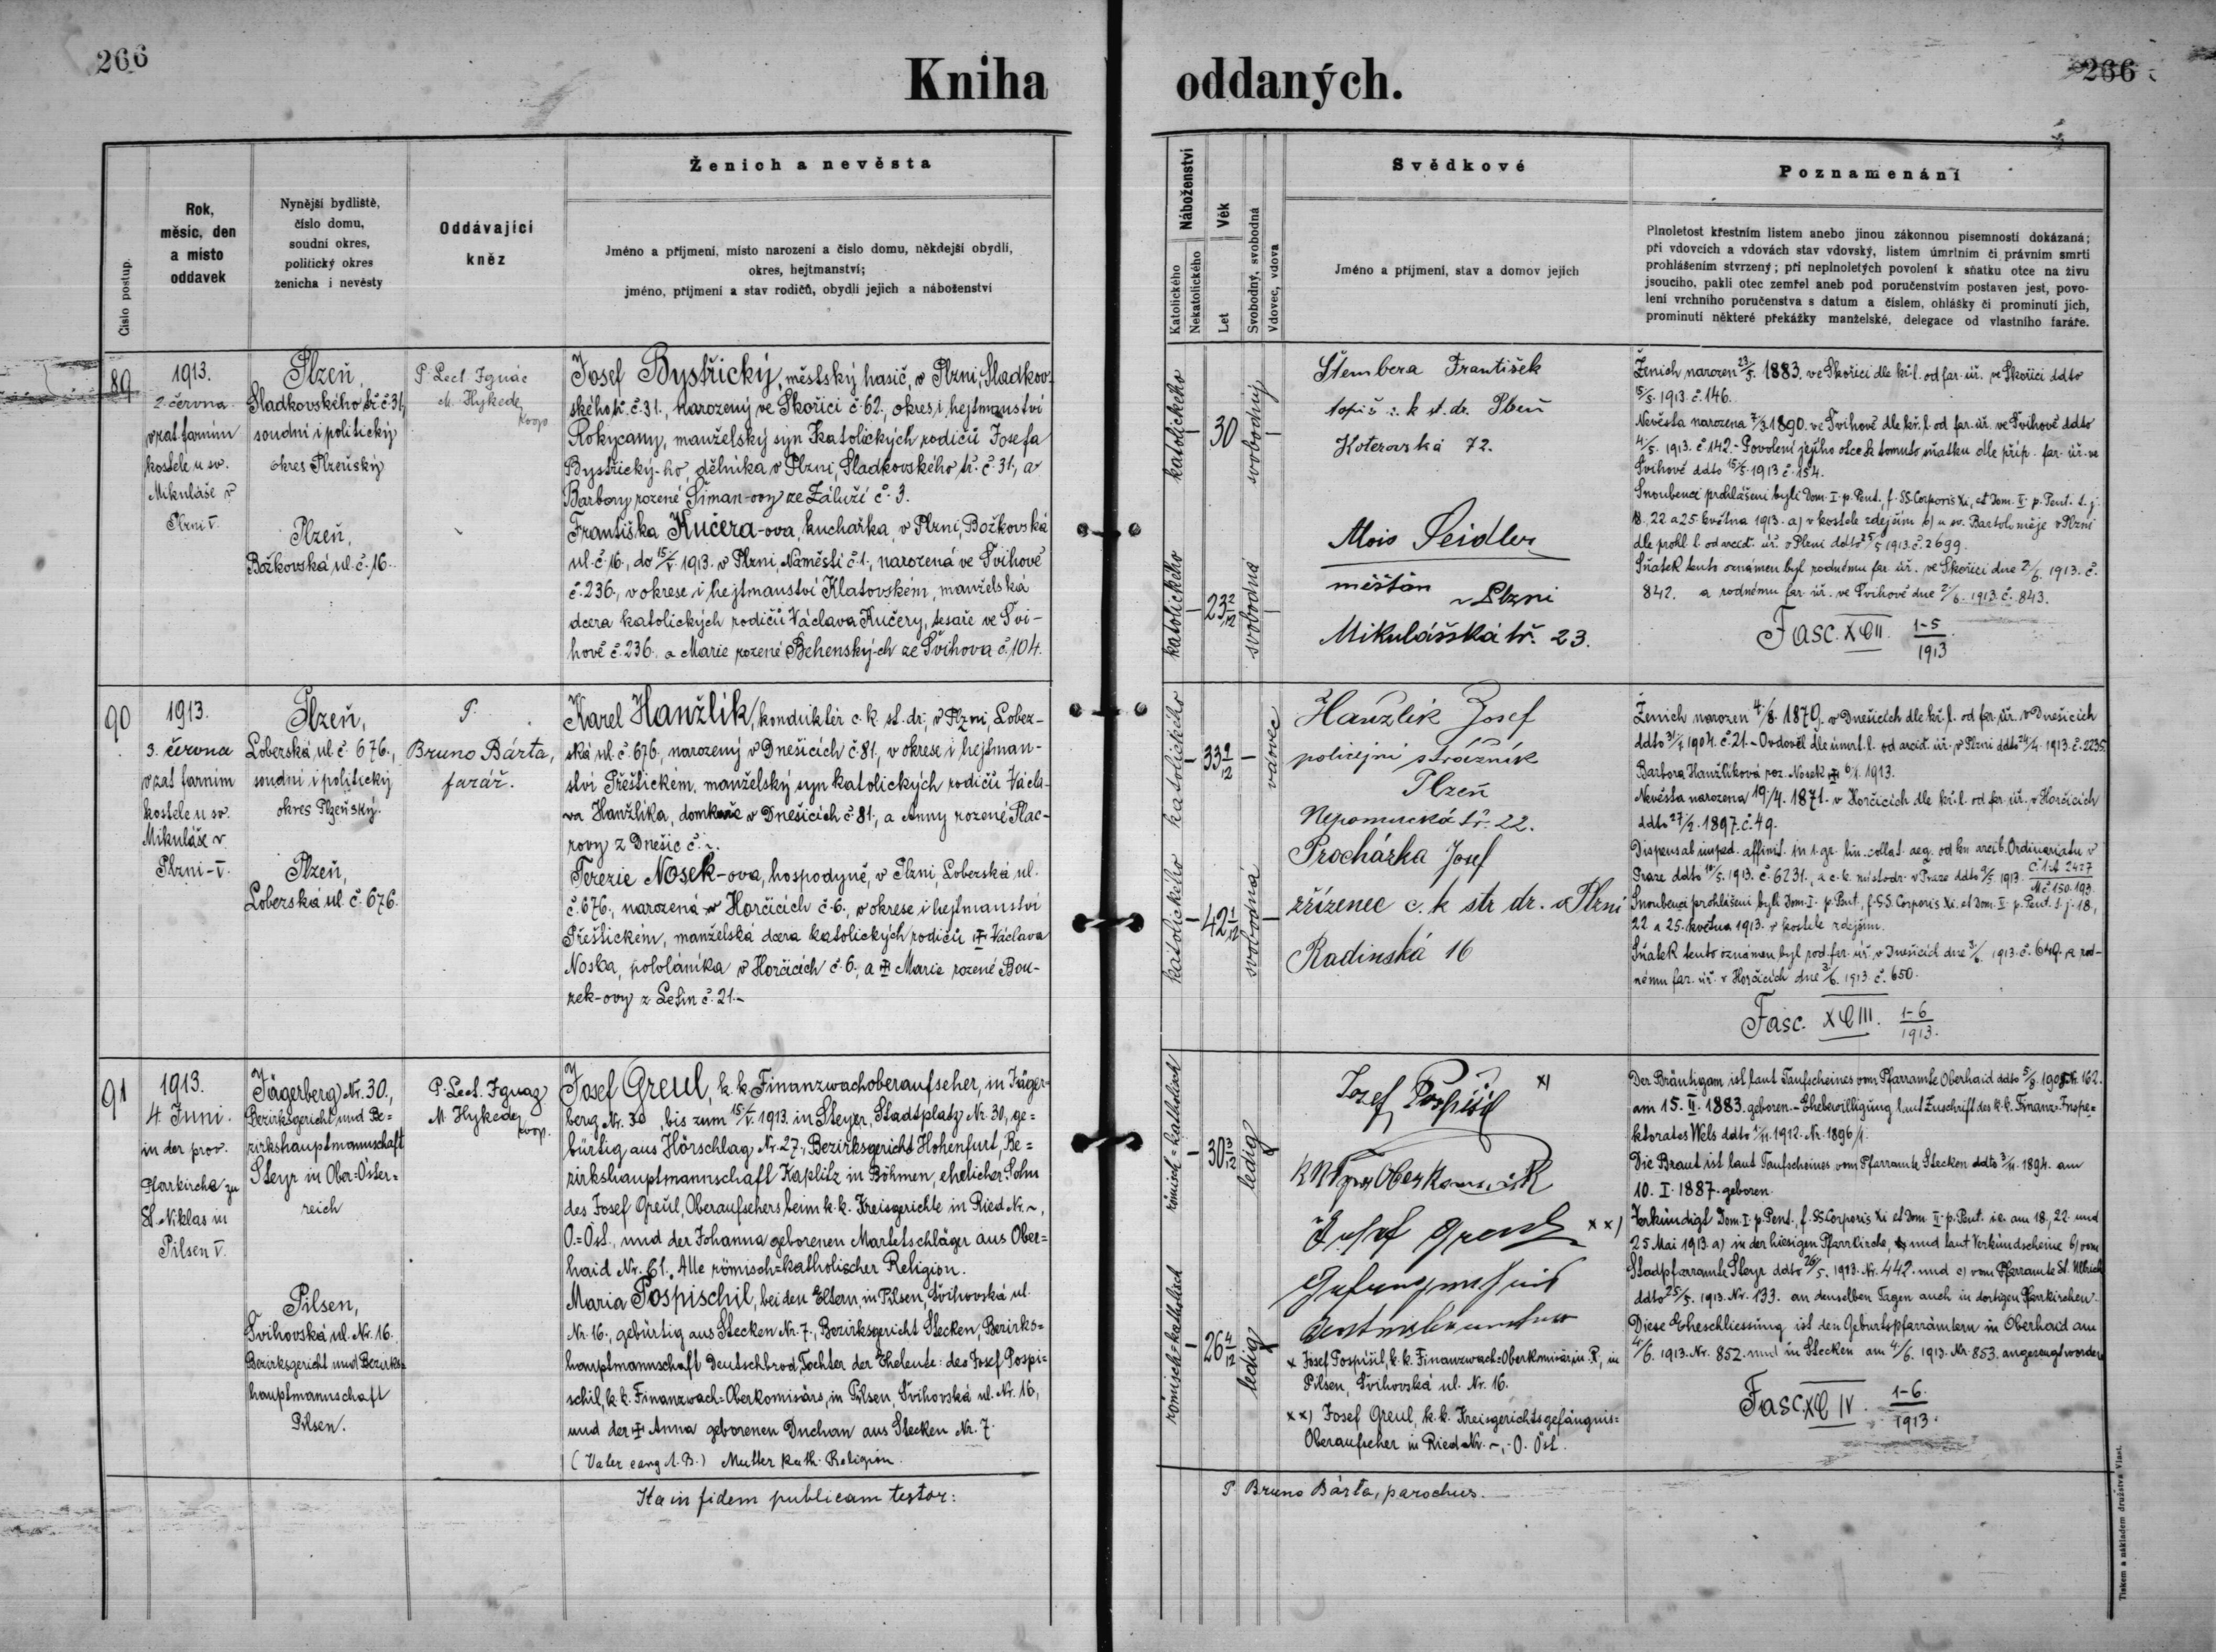 266
Kniha oddaných.
266
Číslo postup.
Rok,
měsíc, den
a místo
oddavek
Nynější bydliště,
číslo domu,
soudní okres,
politický okres
ženicha i nevěsty
Oddávající
kněz
Ženich a nevěsta
Jméno a příjmení, místo narození a číslo domu, někdejší obydlí,
okres, hejtmanství;
jméno, příjmení a stav rodičů, obydlí jejich a náboženství
Náboženství
Katolického
Nekatolického
Věk
Let
Svobodný, svobodná
Vdovec, vdova
Svědkové
Jméno a příjmení, stav a domov jejich
Poznamenání
Plnoletost křestním listem anebo jinou zákonnou písemností dokázaná;
při vdovcích a vdovách stav vdovský, listem úmrtním či právním smrti
prohlášením stvrzený; při neplnoletých povolení k sňatku otce na živu
jsoucího, pakli otec zemřel aneb pod poručenstvím postaven jest, povo-
lení vrchního poručenstva s datum a číslem, ohlášky či prominutí jich,
prominutí některé překážky manželské, delegace od vlastního faráře.
89
1913.
2. června
v zat. farním
kostele u sv.
Mikuláše v
Plzni V.
Plzeň,
Sladkovského tř. č. 31,
soudní i politický
okres Plzeňský
Plzeň,
Božkovská ul. č. 16.
P. Lect. Ignác
M. Hykede
koop
Josef Bystřický, městský hasič, v Plzni, Sladkov-
ského tř. č. 31., narozený ve Skořici č. 62., okres i hejtmanství
Rokycany, manželský syn katolických rodičů Josefa
Bystřický-ho, dělníka v Plzni, Sladkovského tř. č. 31., a
Barbory rozené Šiman-ovy ze Záluží č. 3.
Františka Kučera-ova, kuchařka, v Plzni, Božkovská
ul. č. 16., do 15/V. 1913. v Plzni, Náměstí č. 1., narozená ve Švihově
č. 236., v okrese i hejtmanství Klatovském, manželská
dcera katolických rodičů Václava Kučery, tesaře ve Švi-
hově č. 236. a Marie rozené Behenský-ch ze Švihova č. 104.
katolického
30
svobodný
katolického
23 2/12
svobodná
Štembera František
topič c. k st. dr. Plzeň
Koterovská 72.
Alois Seidler
měšťan
v Plzni
Mikulášská tř. 23.
Ženich narozen 23/5. 1883. ve Skořici dle kř. l. od far. úř. ve Skořici ddto
15/5. 1913. č. 146.
Nevěsta narozena 7/3. 1890. ve Švihově dle kř. l. od far. úř. ve Švihově ddto
4/5. 1913. č. 142. - Povolení jejího otce k tomuto sňatku dle příp. far. úř. ve
Švihově ddto 15/5. 1913 č. 154.
Snoubenci prohlášeni byli Dom. I. p. Pent., f. SS. Corporis Xi, et Dom. II. p. Pent. t. j.
18., 22 a 25. května 1913. a) v kostele zdejším b) u sv. Bartoloměje v Plzni
dle prohl. l. od arcid. úř. v Plzni ddto 25/5 1913. č. 2699.
Sňatek tento oznámen byl rodnému far. úř. ve Skořici dne 2/6. 1913. č.
842. a rodnému far. úř. ve Švihově dne 2/6. 1913. č. 843.
Fasc. XCII. 1-5/1913
90
1913.
3. června
v zat. farním
kostele u sv.
Mikuláše v
Plzni-V.
Plzeň,
Loberská ul. č. 676.,
soudní i politický
okres Plzeňský.
Plzeň,
Loberská ul. č. 676.
P.
Bruno Bárta,
farář.
Karel Hanžlík, konduktér c. k. st. dr., v Plzni, Lober-
ská ul. č. 676., narozený v Dnešicích č. 81., v okrese i hejtman-
ství Přeštickém, manželský syn katolických rodičů Václa-
va Hanžlíka, domkaře v Dnešicích č. 81., a Anny rozené Flac-
rovy z Dnešic č. ~.
Terezie Nosek-ova, hospodyně, v Plzni, Loberská ul.
č. 676., narozená v Horčicích č. 6., v okrese i hejtmanství
Přeštickém, manželská dcera katolických rodičů Václava
Noska, pololáníka v Horčicích č. 6., a Marie rozené Bou-
rek-ovy z Letin č. 21.-
katolického
33 9/12
vdovec
katolického
42 1/12
svobodná
Hanžlík Josef
policejní strážník
Plzeň
Nepomucká tř. 22.
Procházka Josef
zřízenec c. k str dr. v Plzni
Radinská 16
Ženich narozen 4/8. 1879. v Dnešicích dle kř. l. od far. úř. v Dnešicích
ddto 31/1. 1904. č. 21. - Ovdověl dle úmrt. l. od arcid. úř. v Plzni ddto 24/4. 1913. č. 2235.
Barbora Hanžlíková roz. Nosek 6/1. 1913.
Nevěsta narozena 19./4. 1871. v Horčicích dle kř. l. od far. úř. v Horčicích
ddto 27/2. 1897. č. 49.
Dispensal imped. affinit. in 1. gr. lin. collat. aeq. od kn. arcib. Ordinariatu v
Praze ddto 10/5. 1913. č. 6231., a c. k. místodr. v Praze ddto 9/5. 1913.
Snoubenci prohlášeni byli Dom. I. p. Pent., f. SS. Corporis Xi. et Dom. II. p. Pent. t. j. 18.,
22 a 25. května 1913. v kostele zdejším.
Sňatek tento oznámen byl rod. far. úř. v Dnešicích dne 3/6. 1913. č. 649. a rod-
nému far. úř. v Horčicích dne 3/6. 1913. č. 650.
Fasc. XCIII. 1-6/1913.
91
1913.
4. Juni.
in der prov.
Pfarrkirche zu
St. Niklas in
Pilsen V.
Jägerberg Nr. 30.,
Bezirksgericht und Be=
zirkshauptmannschaft
Steyr in Ober-Öster=
reich
Pilsen,
Švihovská ul. Nr. 16.
Bezirksgericht und Bezirks=
hauptmannschaft
Pilsen.
P. Lect. Ignaz
M. Hykede
koop.
Josef Greul, k. k. Finanzwachoberaufseher, in Jäger-
berg Nr. 30 bis zum 15/V. 1913. in Steyer, Stadtplatz Nr. 30, ge=
bürtig aus Hörschlag Nr. 27., Bezirksgericht Hohenfurt, Be=
zirkshauptmannschaft Kaplitz in Böhmen, ehelicher Sohn
des Josef Greul, Oberaufsehers beim k. k. Kreisgerichte in Ried Nr. ~,
O.=Öst., und der Johanna geborenen Martetschläger aus Ober=
haid Nr. 61. Alle römisch=katholischer Religion.
Maria Pospischil, bei den Eltern, in Pilsen, Švihovská ul.
Nr. 16., gebürtig aus Stecken Nr. 7., Bezirksgericht Stecken, Bezirks=
hauptmannschaft Deutschbrod, Tochter der Eheleute: des Josef Pospi=
schil, k. k. Finanzwach=Oberkomisärs, in Pilsen, Švihovská ul. Nr. 16,
und der Anna geborenen Duchan aus Stecken Nr. 7.
(Vater evang. A. B.) Mutter kath. Religion.
römisch=katholisch
30 3/12
ledig
römisch=katholisch
26 4/12
ledig
Josef Pospíšil x)
Josef Greul xx)
x Josef Pospíšil, k. k. Finanzwach=Oberkomisär, in P., in
Pilsen, Švihovská ul. Nr. 16.
xx) Josef Greul, k. k. Kreisgerichtsgefängnis=
Oberaufseher in Ried Nr. ~, O. Öst.
Der Bräutigam ist laut Taufscheines vom Pfarramte Oberhaid ddto 5/8. 1905. Nr. 162.
am 15. II. 1883. geboren. - Ehebewilligung laut Zuschrift des k. k. Finanz-Inspe=
ktorates Wels ddto 1/11. 1912. Nr. 1896/1.
Die Braut ist laut Taufscheines vom Pfarramte Stecken ddto 3/11. 1894. am
10. I. 1887. geboren.
Verkündigt Dom. I. p. Pent., f. SS Corporis Xi et Dom. II. p. Pent. i. e. am 18., 22. und
25 Mai 1913. a) in der hiesigen Pfarrkirche, und laut Verkündscheine b) vom
Stadtpfarramte Steyr ddto 26/5. 1913. Nr. 442. und c) vom Pfarramte St. Ulbrich
ddto 25/5. 1913. Nr. 133. an denselben Tagen auch in dortigen Pfarrkirchen.
Diese Eheschliessung ist den Geburtspfarrämtern in Oberhaid am
4/6. 1913. Nr. 852. und in Stecken am 4/6. 1913. Nr. 853. angezeugt worden
Fasc. XCIV. 1-6./1913.
Ita in fidem publicam testor:
P. Bruno Bárta, parochus.
Tiskem a nákladem družstva Vlast.